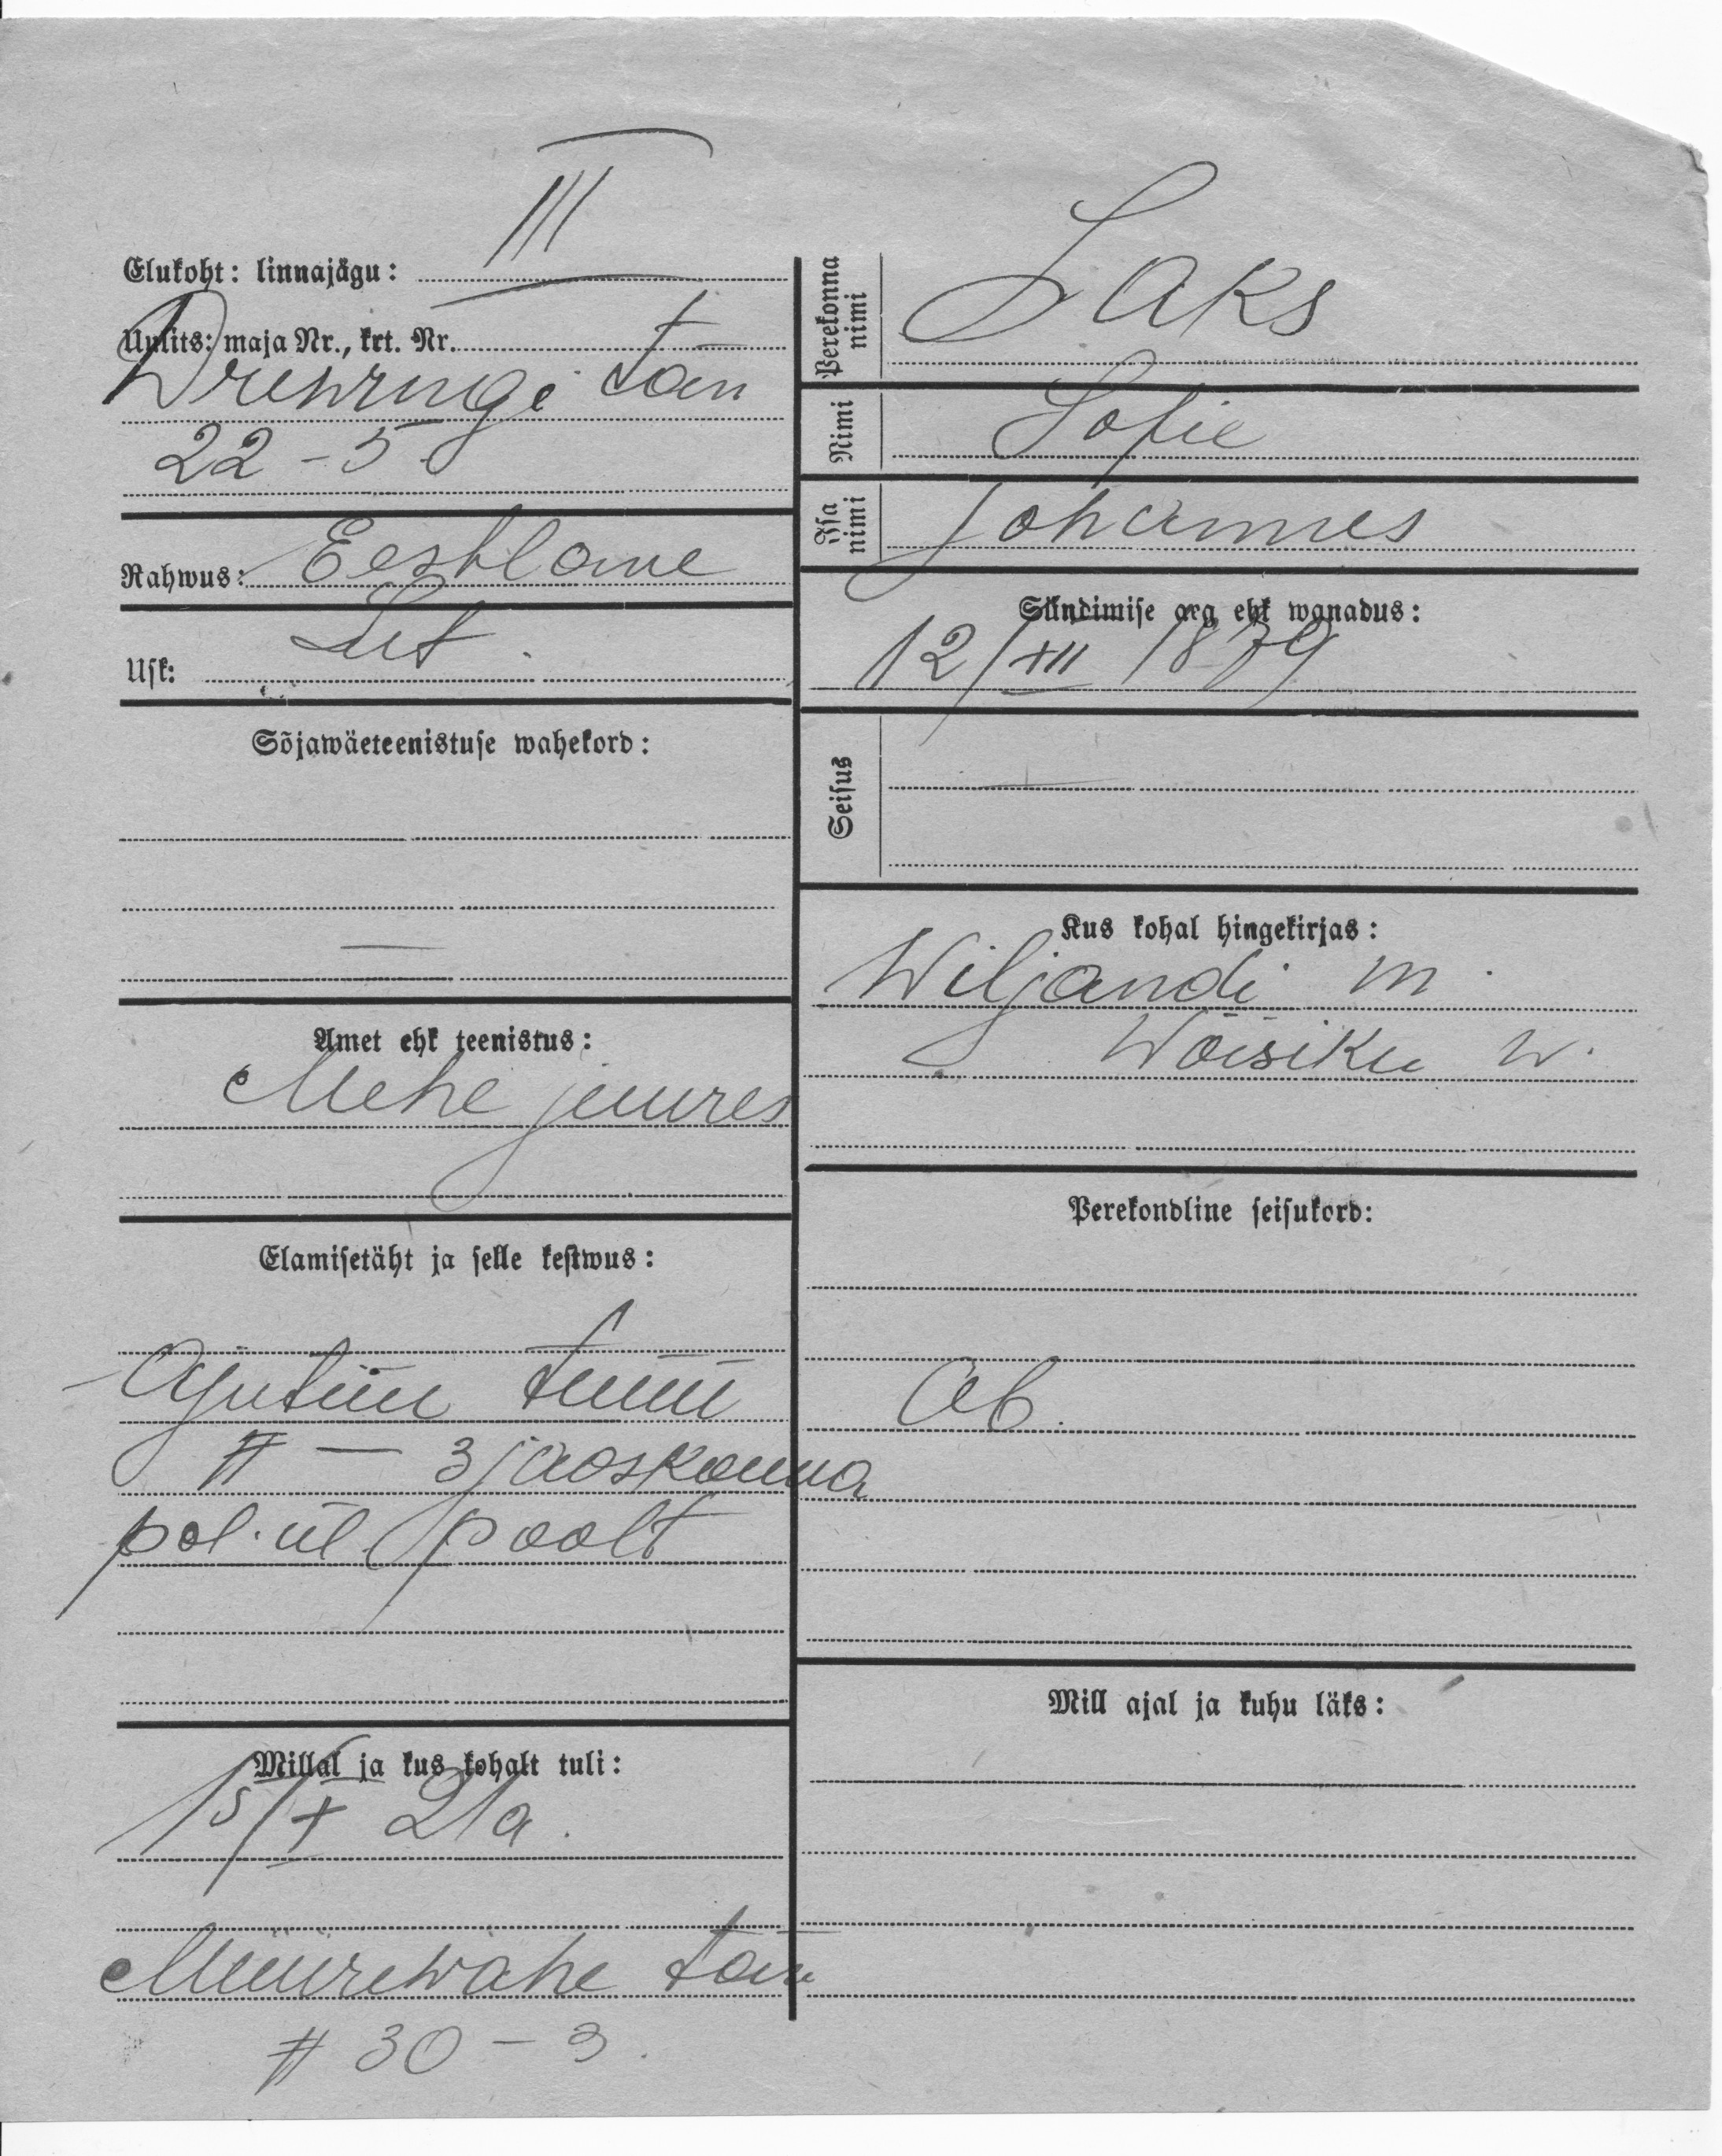 III
Elukoht: linnajagu:
Uulits: maja Nr., krt. Nr.
tän
22 - 5
Rahwus: Eestlane
Usk: Lut.
Sõjawäeteenistuse wahekord:
—
Amet ehk teenistus:
Mehe juures
Elamisetäht ja selle kestwus:
Ajutine tunn
# — 3 jaoskonna
pol. ül. poolt
Millal ja kus kohalt tuli:
15/X 21a.
Müürewahe tän
# 30 - 3.
Perekonna nimi Saks
Nimi Sofie
Isa nimi Johannes
Sündimise aeg ehk wanadus:
12/XII 1879
Seisus
Kus kohal hingekirjas:
Wiljandi m.
Wõisiku w.
Perekondline seisukord:
Ab.
Mill ajal ja kuhu läks: